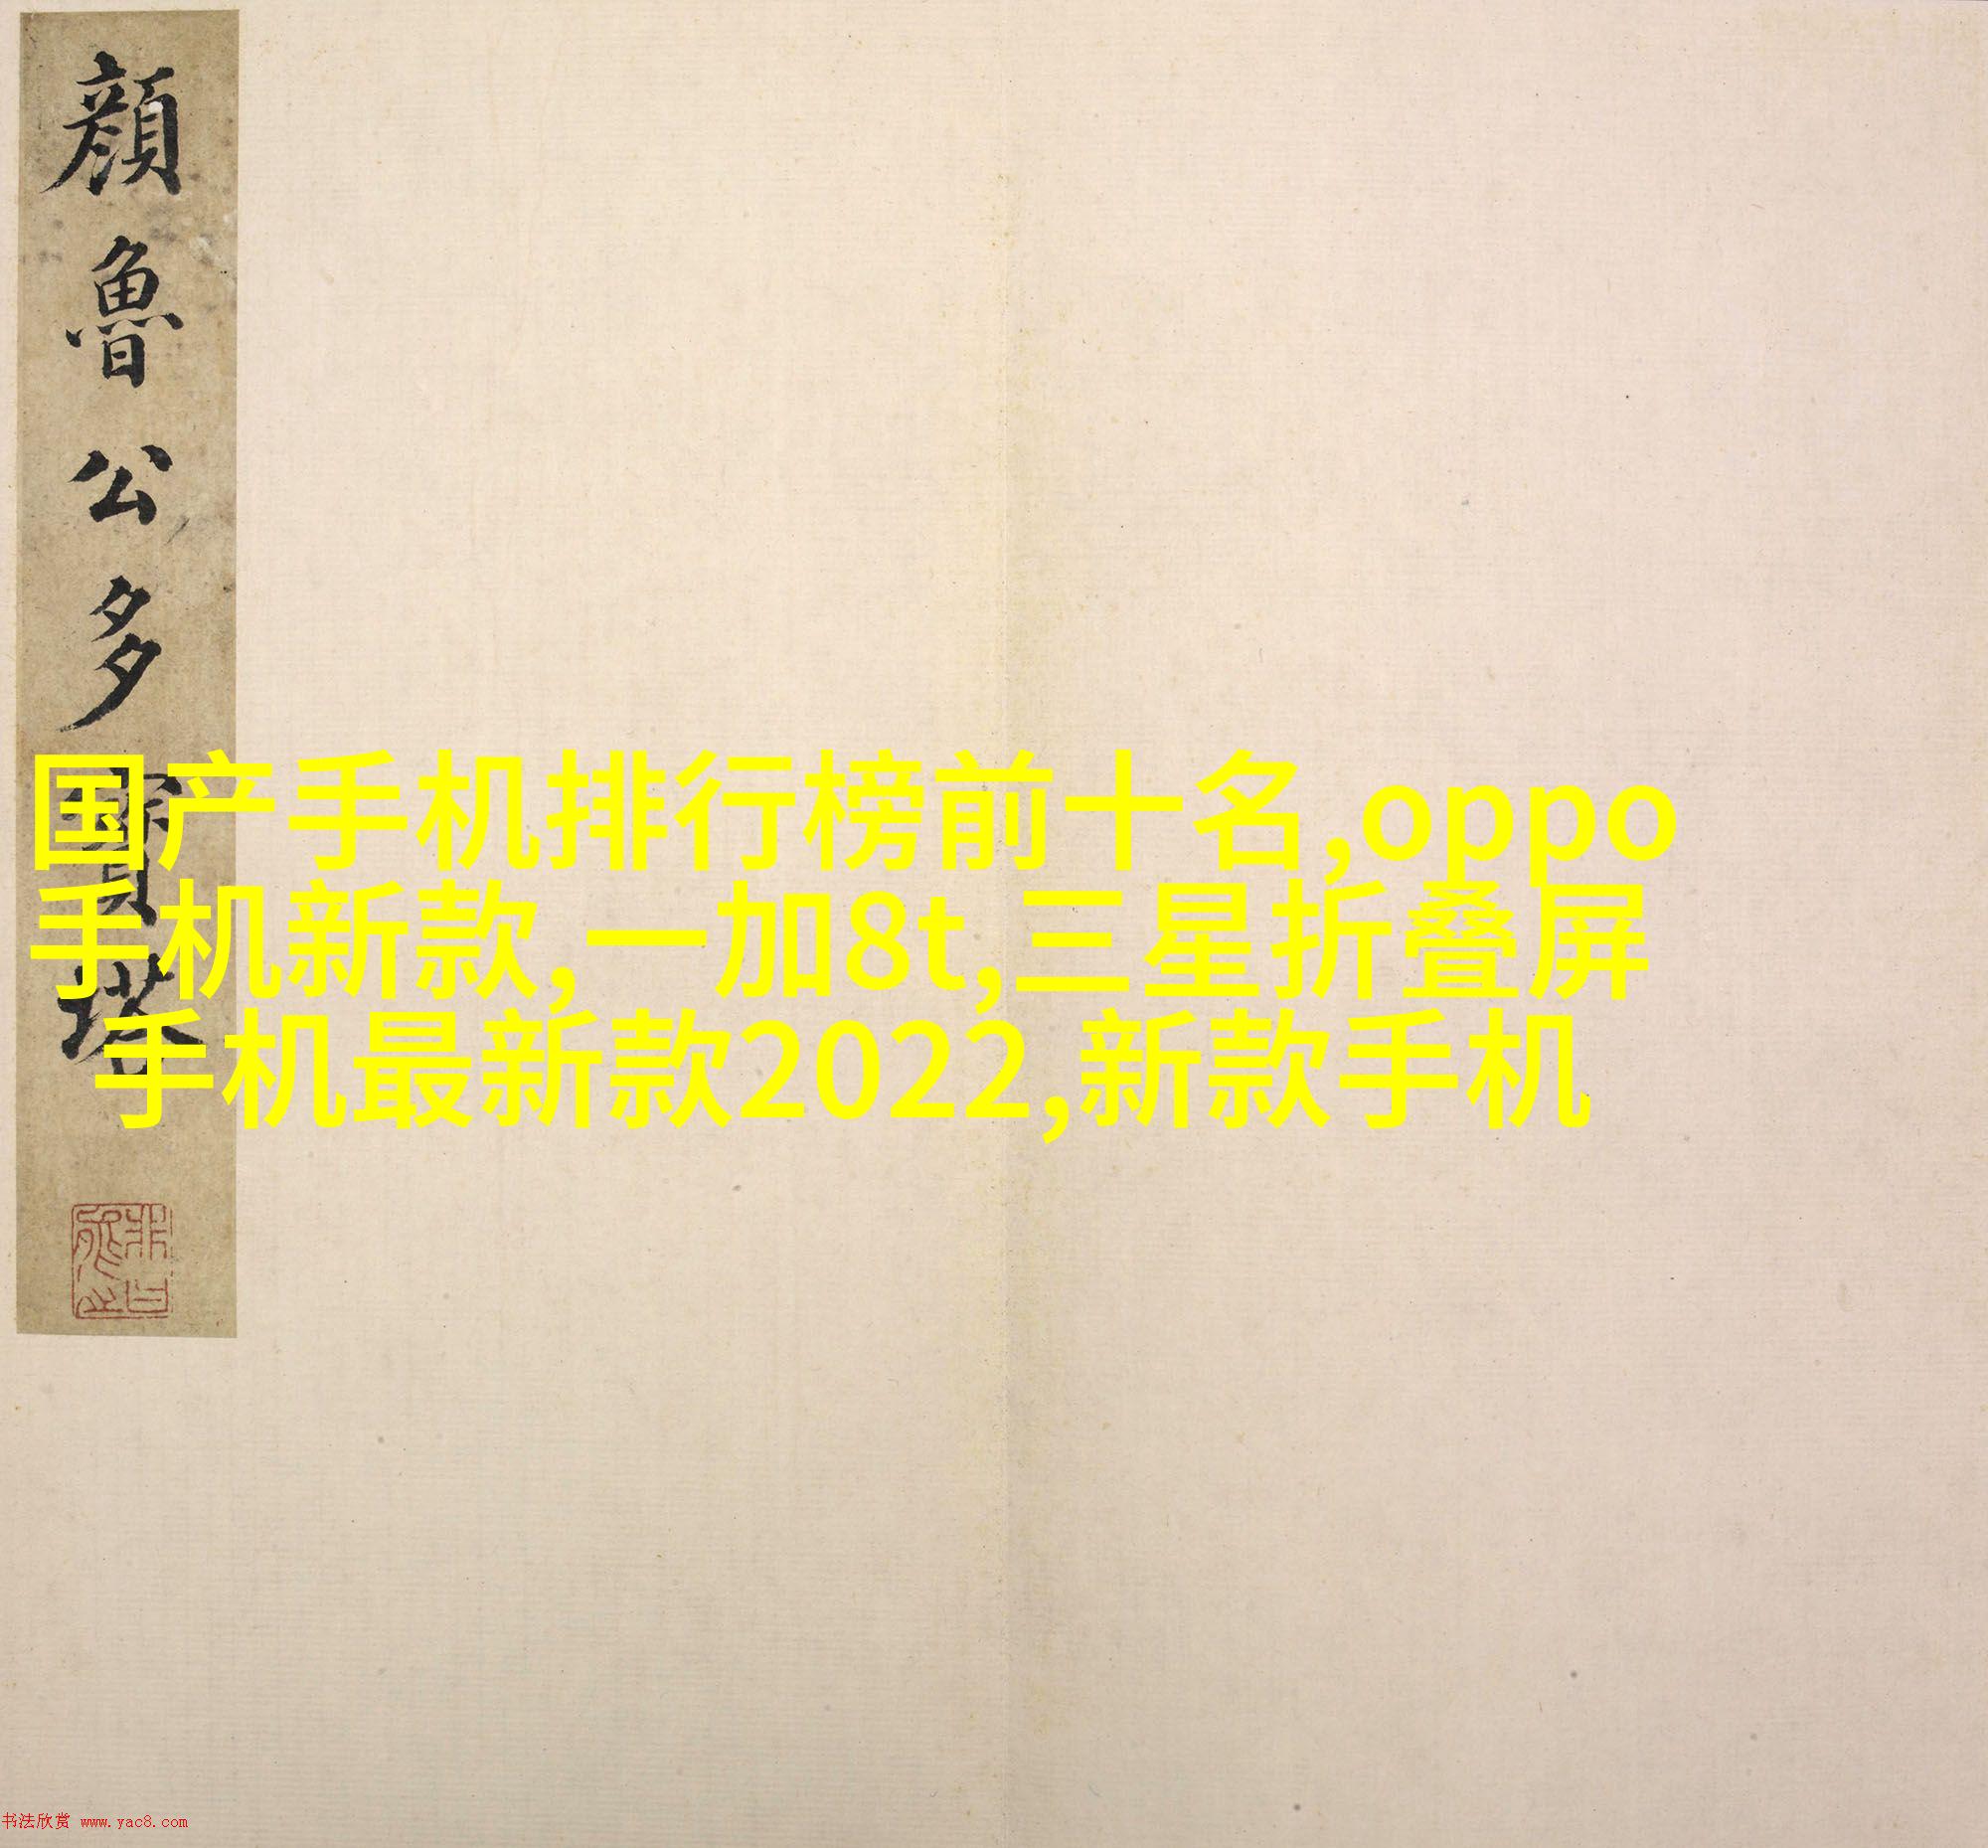 顔魯公多寶塔
国产手机排行榜前十名,oppo
手机新款,一加8t,三星折叠屏
手机最新款2022,新款手机
书法欣赏 www.yac8.com